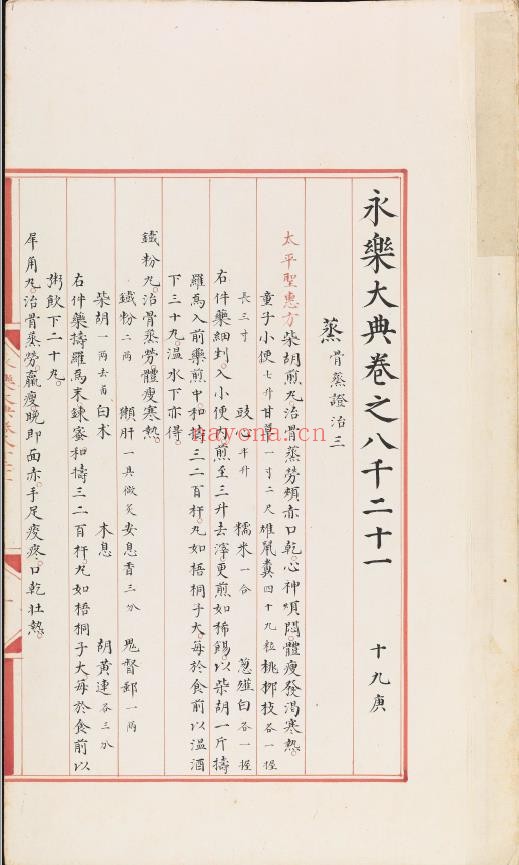 永樂大典卷之八千二十一 十九庚
蒸 骨蒸證治三
太平聖惠方柴胡煎丸治骨蒸勞頰赤口乾心神煩悶體瘦發渴寒熱
童子小便七升甘草一寸二尺雄鼠糞四十九粒桃柳枝各一握
長三寸 豉心半升 糯米一合 葱薤白各一握
右件藥細剉入小便內煎至三升去滓更煎如稀餳以柴胡一斤擣
羅爲入前藥煎中和擣三二百杵丸如梧桐子大每於食前以温酒
下三十九温水下亦得
鐵粉丸治骨蒸勞體瘦寒熱
鐵粉二兩 獺肝一具微炙安息香三分 鬼督郵一兩
柴胡一兩去苗 白术 木息 胡黃連各三分
右件藥擣羅爲末鍊蜜和擣三二百杵丸如梧桐子大每於食前以
粥飲下二十九
犀角丸治骨蒸勞羸瘦晚即面赤手足痠疼口乾壯熱
nayona.cn